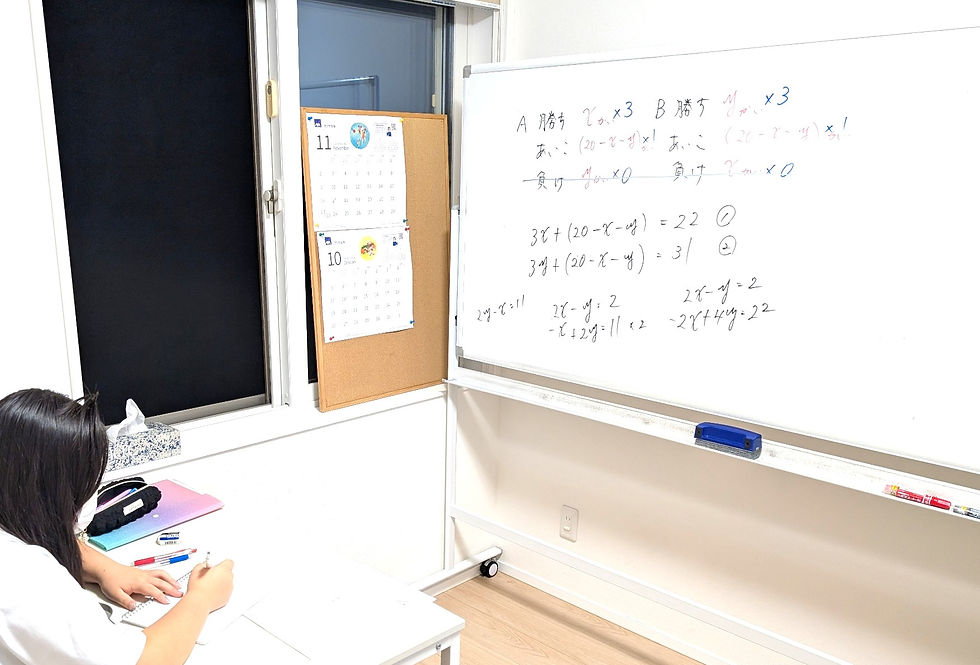 11
10
A 勝ち x回 ×3 B 勝ち y回 ×3
あいこ (20-x-y) ×1 あいこ (20-x-y) ×1
負け y回 ×0 負け x回 ×0
3x+(20-x-y) = 22 ①
3y+(20-x-y) = 31 ②
2y-x=11
2x-y=2
-x+2y=11 ×2
2x-y=2
-2x+4y=22